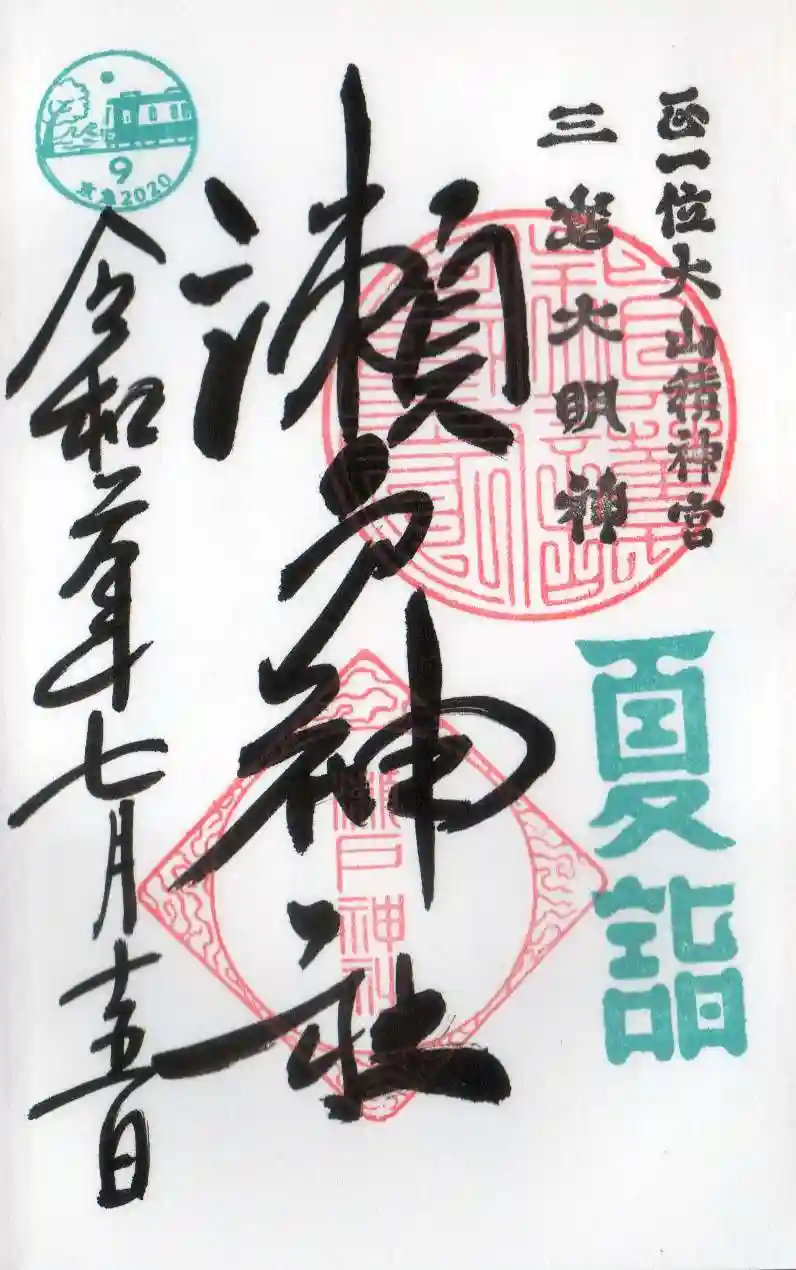 正一位大山積神宮
三嶌大明神
夏詣
瀬戸神社
瀬戸神社
令和二年七月十五日
9
2020